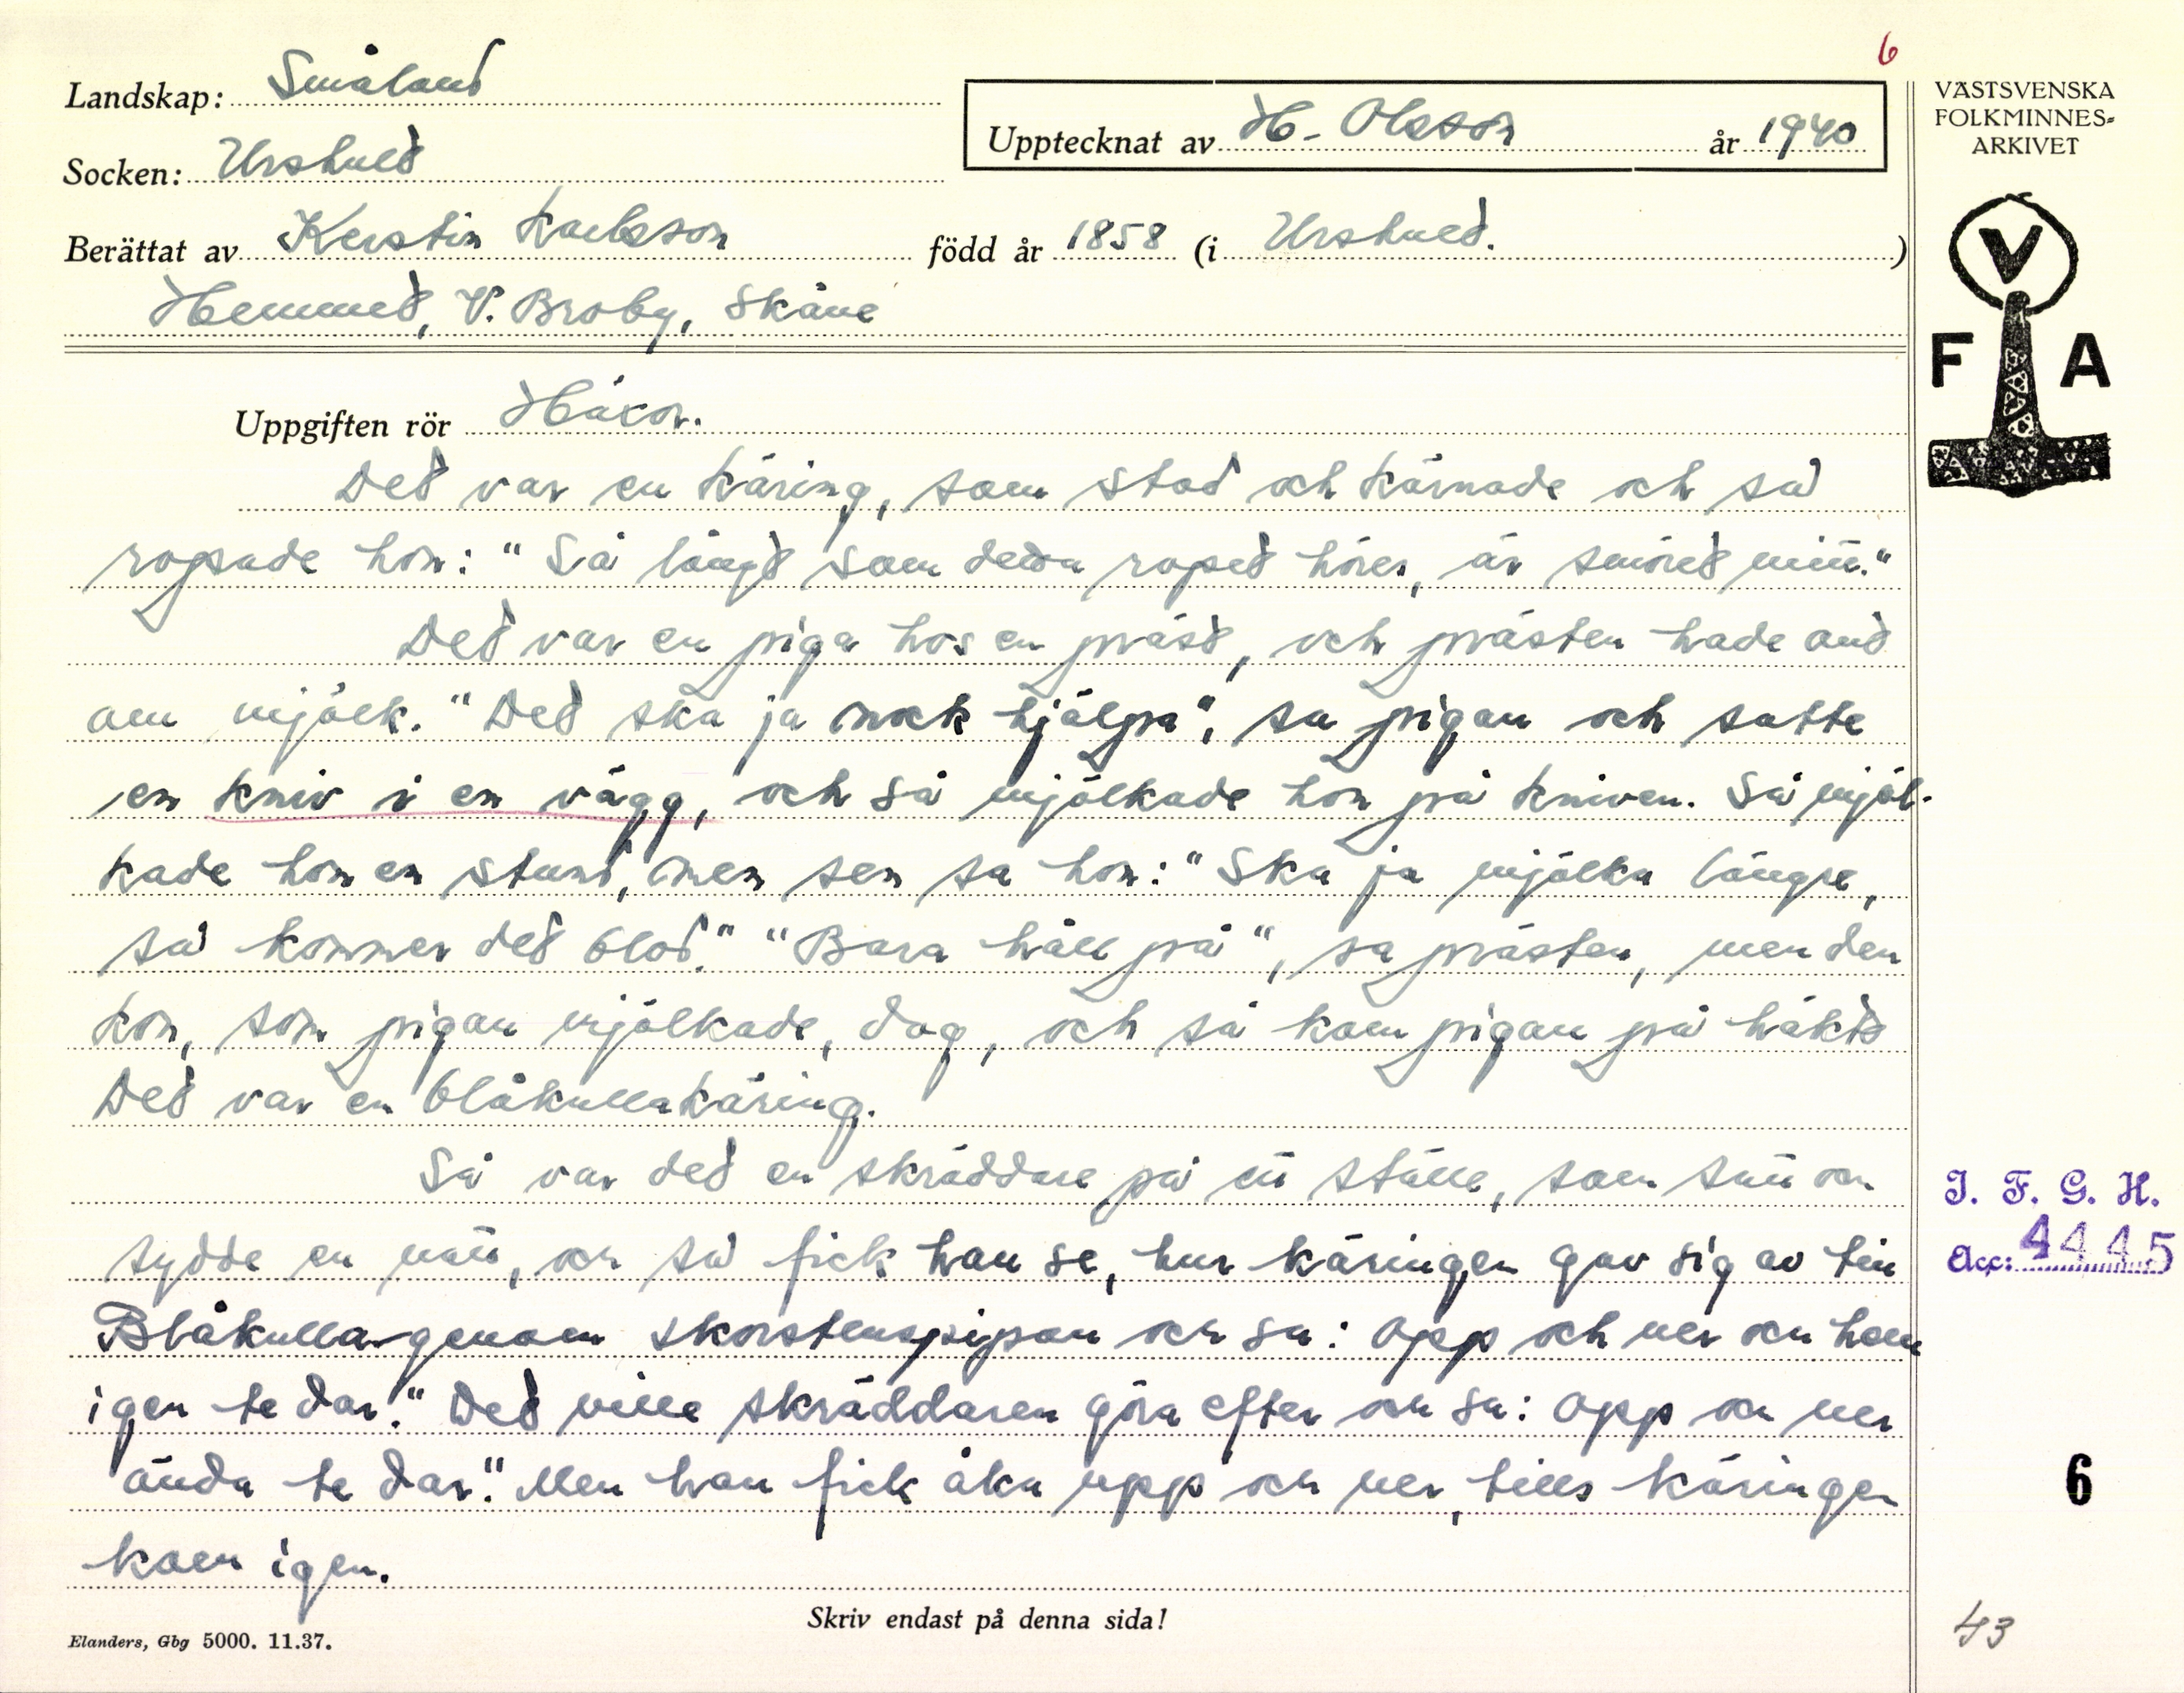 6
Landskap: Småland
Upptecknat av H. Olsson år 1940
VÄSTSVENSKA
FOLKMINNES-
ARKIVET
Socken: Urshult
Berättat av Kerstin Karlsson född år 1858 (i Urshult.)
Hemmet, V. Broby, Skåne
V
F A
Uppgiften rör Häxor.
Det var en käring, som stod och kärnade och så
ropade hon: "Så långt som detta ropet höres, är smöret mitt."
Det var en piga hos en präst, och prästen hade ont
om mjölk. "Det ska ja nock hjälpa", sa pigan och satte
en kniv i en vägg, och så mjölkade hon på kniven. Så mjöl-
kade hon en stund, men sen sa hon: "Ska ja mjölka längre,
så kommer det blod." "Bara håll på", sa prästen, men den
kon, som pigan mjölkade, dog, och så kom pigan på häkte
Det var en blåkullakäring.
Så var det en skräddare på ett ställe, som satt och
sydde en natt, och så fick han se, hur käringen gav sig av till
Blåkulla genom skorstenspipan och sa: Opp och ner och hem
igen te dar." Det ville skräddaren göra efter och sa: Opp och ner
ända te dar." Men han fick åka upp och ner, tills käringen
kom igen.
I. F. G. H.
Acc: 4445
6
Skriv endast på denna sida!
Elanders, Gbg 5000. 11.37.
43